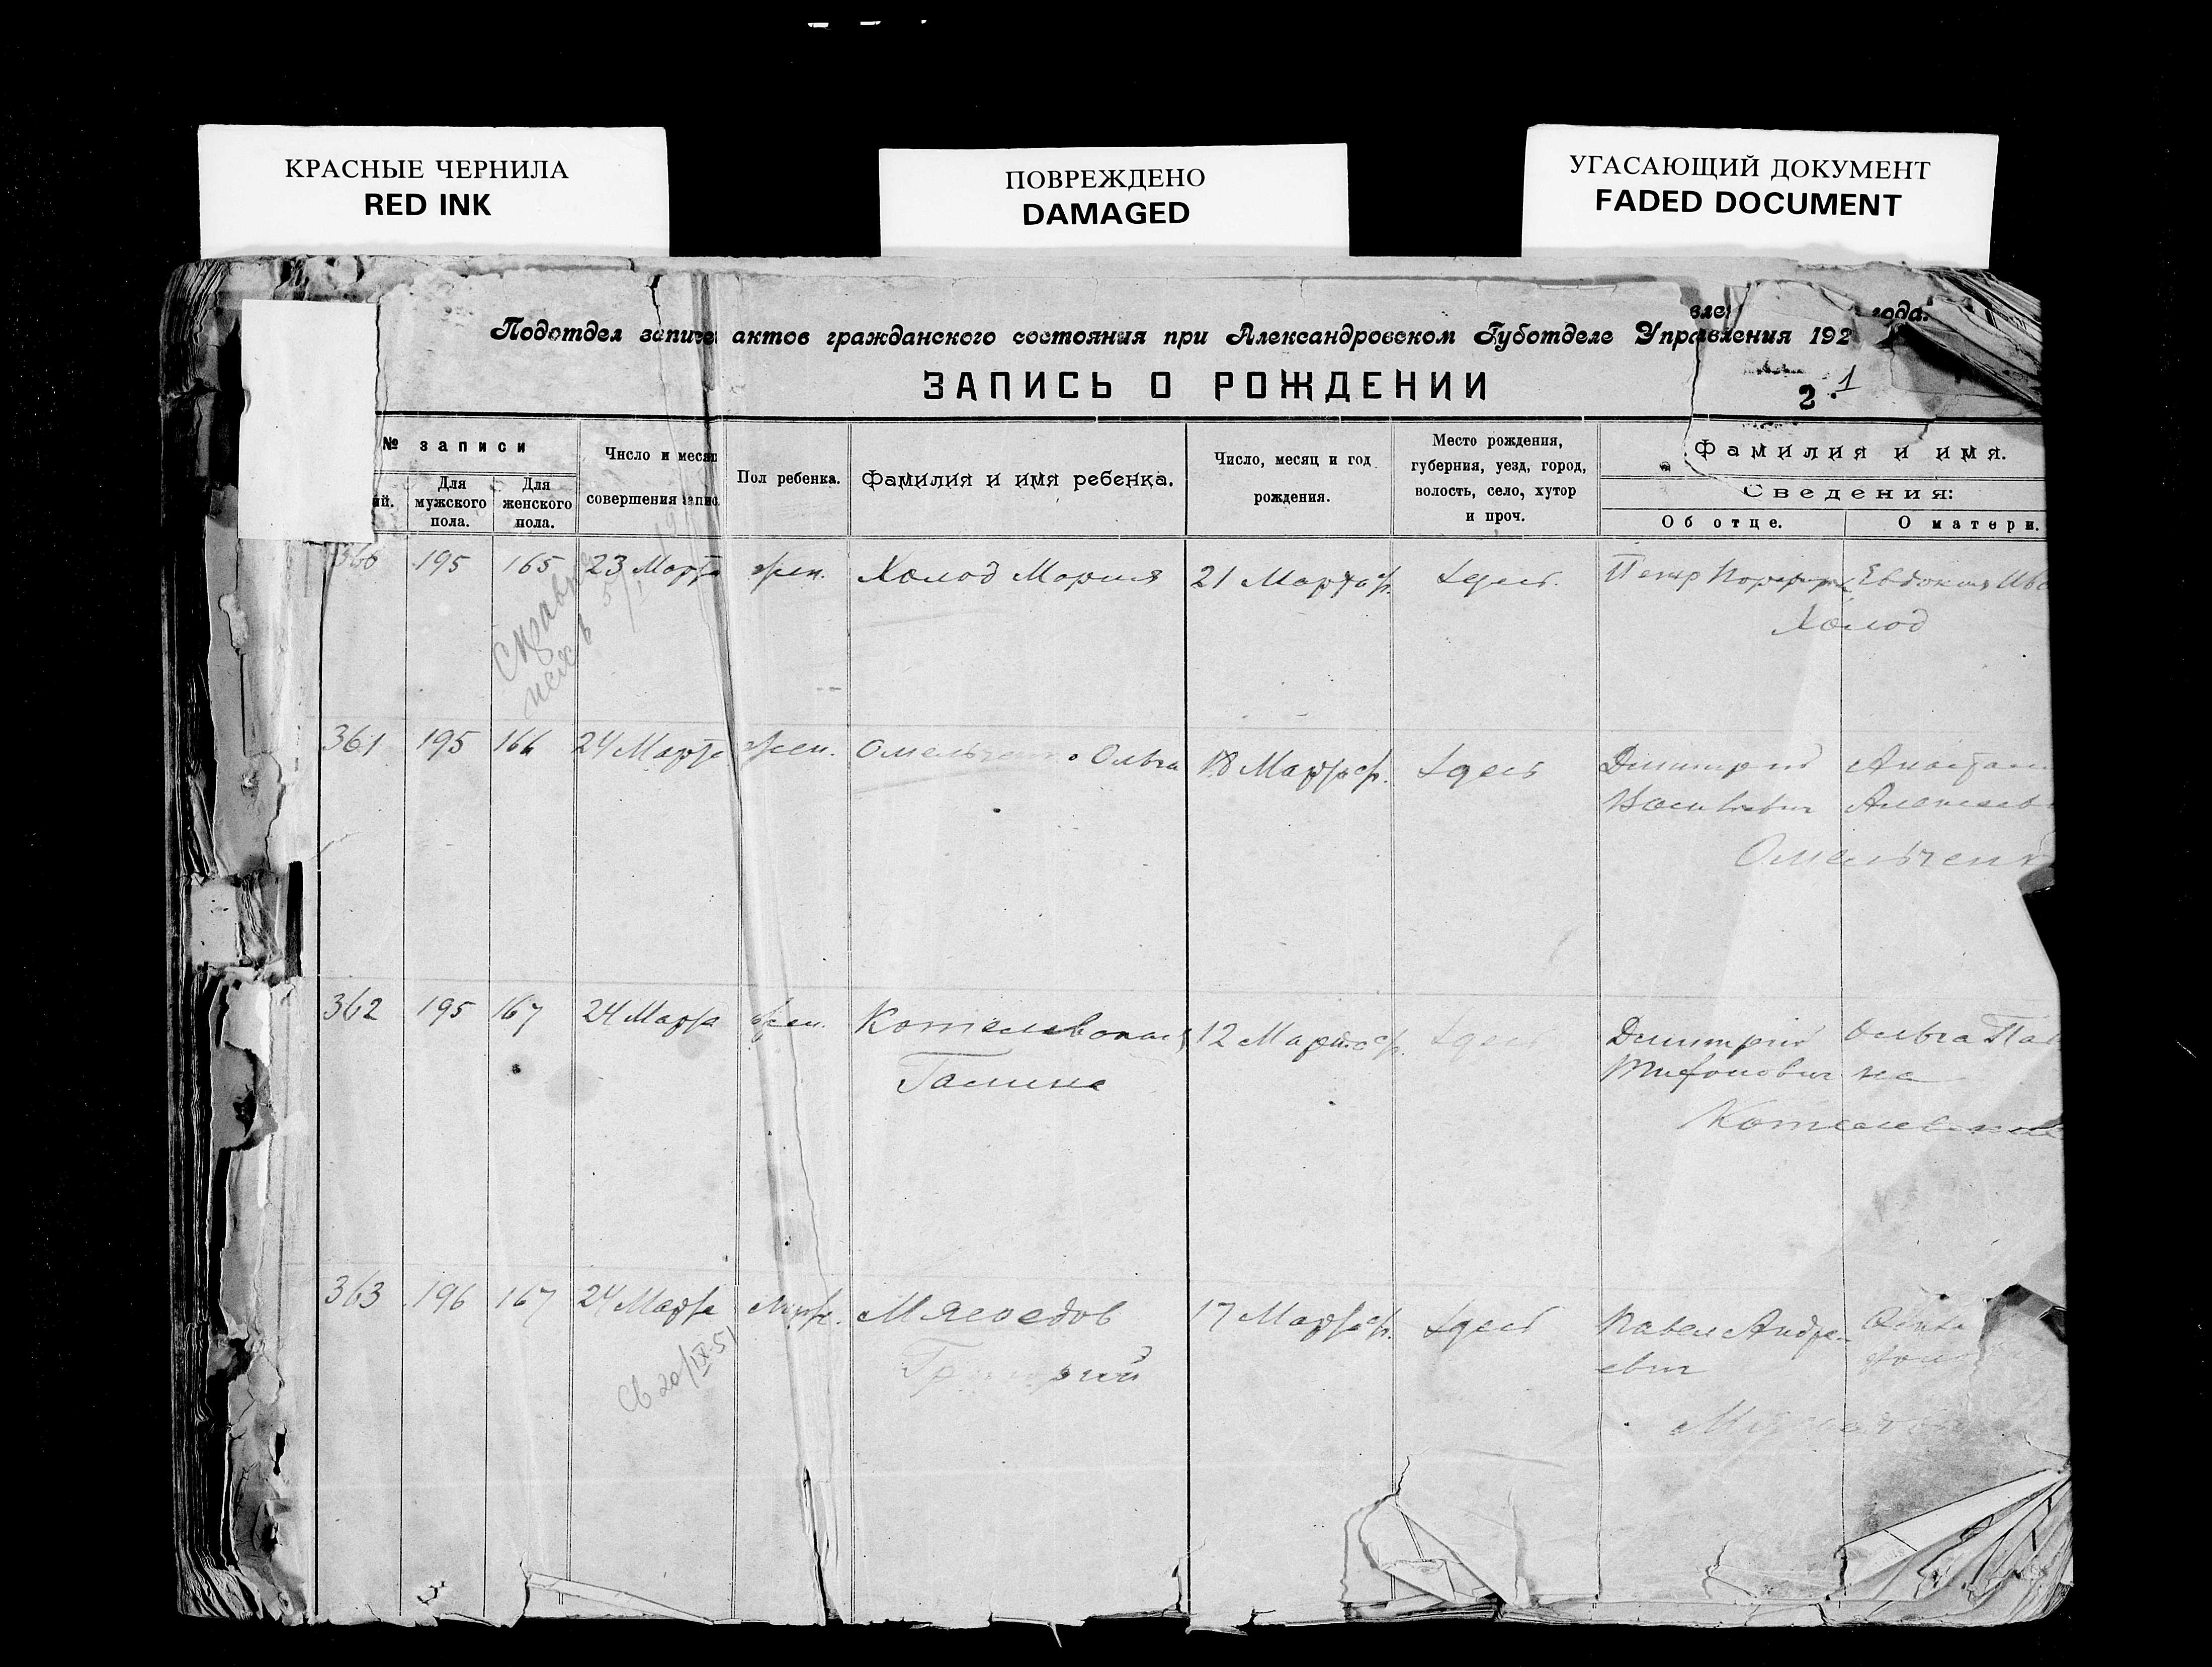 КРАСНЫЕ ЧЕРНИЛА
RED INK
ПОВРЕЖДЕНО
DAMAGED
УГАСАЮЩИЙ ДОКУМЕНТ
FADED DOCUMENT
Подотдел записи актов гражданского состояния при Александровском Губотделе Управления 192 года.
ЗАПИСЬ О РОЖДЕНИИ
2 1
№ записи
Для мужского пола.
Для женского пола.
Число и месяц
совершения запис
Пол ребенка.
Фамилия и имя ребенка.
Число, месяц и год
рождения.
Место рождения,
губерния, уезд, город,
волость, село, хутор
и проч.
Фамилия и имя.
Сведения:
Об отце.
О матери.
360 195 165 23 Марта жен. Холод Мария 21 Марта с/г. здесь. Петр Евдокия Ива
Холод
361 195 166 24 Марта жен. Омельченко Ольга 18 Марта с/г. здесь Димитрий
Васильевич Алексеев
Омельченк
362 195 167 24 Марта жен. Котелевская 12 Марта с/г. здесь Димитрий Ольга Пав
Галина на
363 196 167 24 Марта муж. Мясоедов 17 Марта с/г. здесь Павел Андре-
Григорий евич
Св 20/IX-51